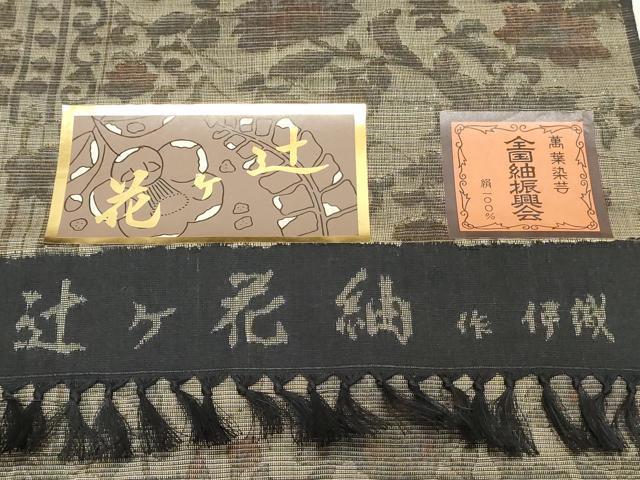 辻ヶ花
萬葉染芸
全国紬振興会
絹一〇〇%
辻ヶ花紬 作